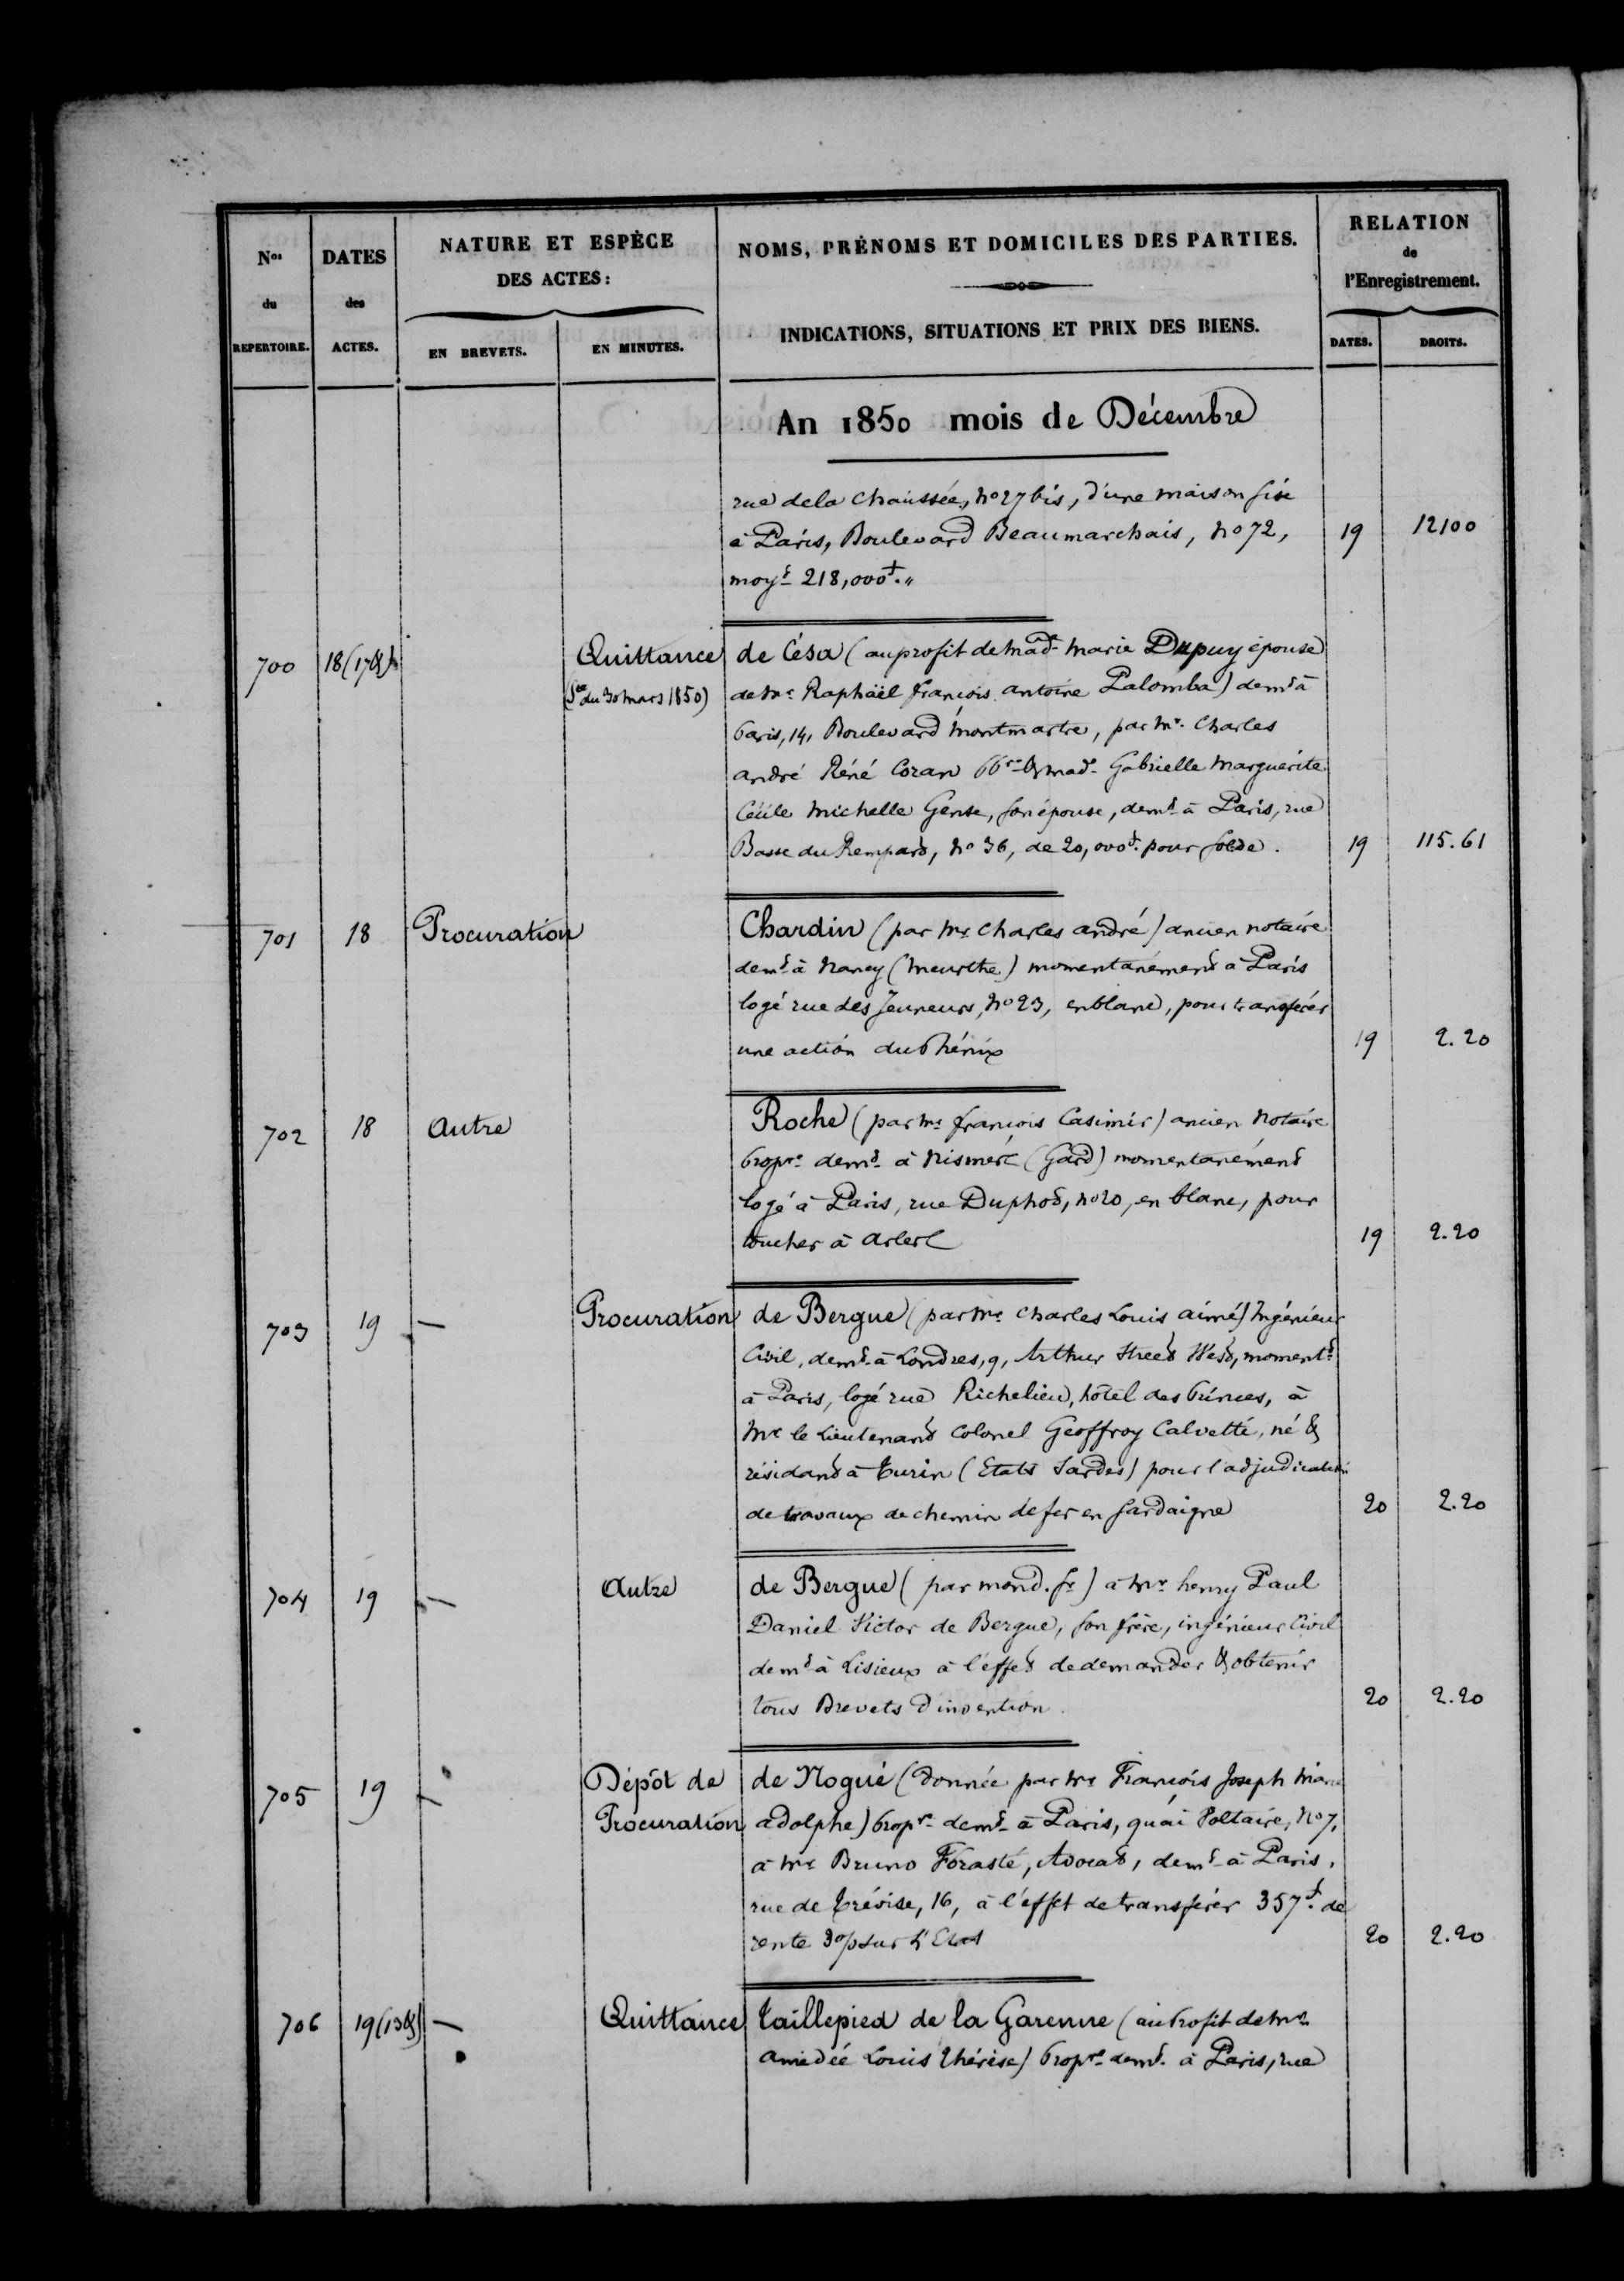 Nos
du
REPERTOIRE.
DATES
des
ACTES.
NATURE ET ESPÈCE
DES ACTES:
EN BREVETS.
EN MINUTES.
NOMS, PRÉNOMS ET DOMICILES DES PARTIES.
INDICATIONS, SITUATIONS ET PRIX DES BIENS.
RELATION
de
l'Enregistrement.
DATES.
DROITS.
An 1850 mois de Décembre
rue de la Chaussée, no 27 bis, d'une maison sise
à Paris, Boulevard Beaumarchais, no 72, 19 12100
moyt 218,000f.„
700 18 (17&) Quittance de Césa (au profit de Made Marie Dupuy épouse
(Ste du 30 mars 1850) de Mr Raphaël François Antoine Palomba) demt à
Paris, 14, Boulevard Montmartre, par Mr Charles
André Réné Cozan ppre & made Gabrielle Marguerite
Cécile Michelle Gense, son épouse, demt à Paris, rue
Basse du Rempart, no 36, de 20,000f. pour solde. 19 115.61
701 18 Procuration Chardin (par Mr Charles André) ancien notaire
demt à Nancy (Meurthe) momentanément à Paris
logé rue des Jeuneurs, no 23, en blanc, pour transférer
une action du Phénix 19 2.20
702 18 Autre Roche (par Mr François Casimir) ancien Notaire
propre demt à Nismes (Gard) momentanément
logé à Paris, rue Duphot, no 20, en blanc, pour
toucher à Arles 19 2.20
703 19 — Procuration de Bergue (par Mr Charles Louis Aimé) Ingénieur
Civil, demt à Londres, 9, Arthur Street West, moment.t
à Paris, logé rue Richelieu, hôtel des Princes, à
Mr le Lieutenant Colonel Geoffroy Calvetté, né &
résidant à Turin (Etats Sardes) pour l'adjudication
de travaux de chemin de fer en Sardaigne 20 2.20
704 19 — Autre de Bergue (par mond. sr) à Mr henry Paul
Daniel Victor de Bergue, son frère, ingénieur Civil
demt à Lisieux à l'effet de demander & obtenir
tous Brevets d'invention 20 2.20
705 19 — Dépôt de de Nogué (Donnée par Mr François Joseph Marie
Procuration adolphe) propre demt à Paris, quai Voltaire, no 7,
à Mr Bruno Forasté, Avocat, demt à Paris,
rue de Trévise, 16, à l'effet de transférer 357f. de
rente 3 o/o sur l'Etat 20 2.20
706 19 (13&) — Quittance Taillepied de la Garenne (au Profit de Mr
Amédée Louis Thérèse) propre demt à Paris, rue